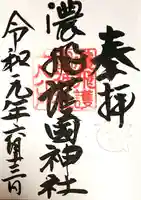 奉拝
濃飛護國神社
令和元年六月十二日